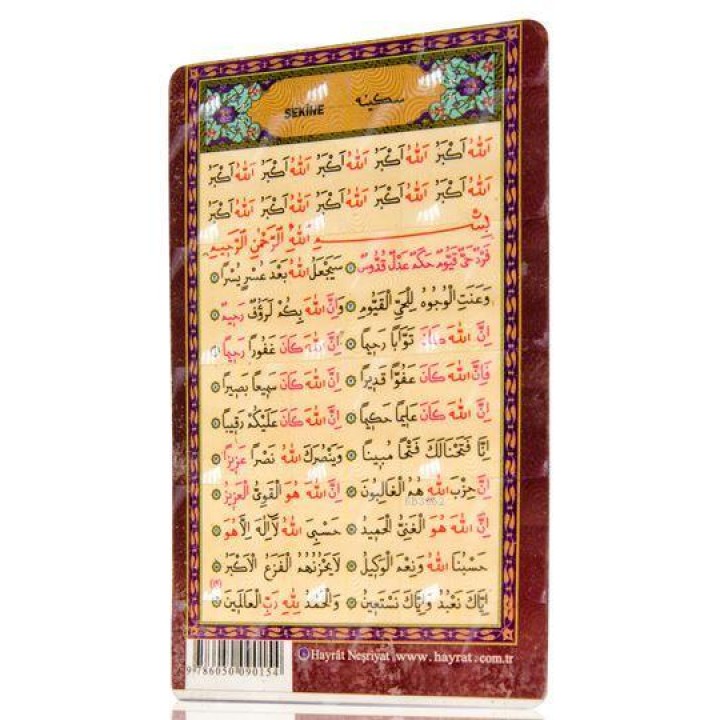 SEKİNE سكينه
اَللّٰهُ اَكْبَرُ اَللّٰهُ اَكْبَرُ اَللّٰهُ اَكْبَرُ اَللّٰهُ اَكْبَرُ اَللّٰهُ اَكْبَرُ
اَللّٰهُ اَكْبَرُ اَللّٰهُ اَكْبَرُ اَللّٰهُ اَكْبَرُ اَللّٰهُ اَكْبَرُ اَللّٰهُ اَكْبَرُ
بِسْمِ اللّٰهِ الرَّحْمٰنِ الرَّحِيمِ
فَرْدٌ حَىٌّ قَيُّومٌ حَكَمٌ عَدْلٌ قُدُّوسٌ سَيَجْعَلُ اللّٰهُ بَعْدَ عُسْرٍ يُسْرًا
وَعَنَتِ الْوُجُوهُ لِلْحَىِّ الْقَيُّومِ وَاِنَّ اللّٰهَ بِكُمْ لَرَؤُفٌ رَحِيمٌ
اِنَّ اللّٰهَ كَانَ تَوَّابًا رَحِيمًا اِنَّ اللّٰهَ كَانَ غَفُورًا رَحِيمًا
فَاِنَّ اللّٰهَ كَانَ عَفُوًّا قَدِيرًا اِنَّ اللّٰهَ كَانَ سَمِيعًا بَصِيرًا
اِنَّ اللّٰهَ كَانَ عَلِيمًا حَكِيمًا اِنَّ اللّٰهَ كَانَ عَلَيْكُمْ رَقِيبًا
اِنَّا فَتَحْنَا لَكَ فَتْحًا مُبِينًا وَيَنْصُرَكَ اللّٰهُ نَصْرًا عَزِيزًا
اِنَّ حِزْبَ اللّٰهِ هُمُ الْغَالِبُونَ اِنَّ اللّٰهَ هُوَ الْقَوِىُّ الْعَزِيزُ
اِنَّ اللّٰهَ هُوَ الْغَنِىُّ الْحَمِيدُ حَسْبِىَ اللّٰهُ لَٓا اِلٰهَ اِلَّا هُوَ
حَسْبُنَا اللّٰهُ وَنِعْمَ الْوَكِيلُ لَا يَحْزُنُهُمُ الْفَزَعُ الْاَكْبَرُ
(١٩)
اِيَّاكَ نَعْبُدُ وَاِيَّاكَ نَسْتَعِينُ وَالْحَمْدُ لِلّٰهِ رَبِّ الْعَالَمِينَ
Hayrât Neşriyat www.hayrat.com.tr
9 786050 090154